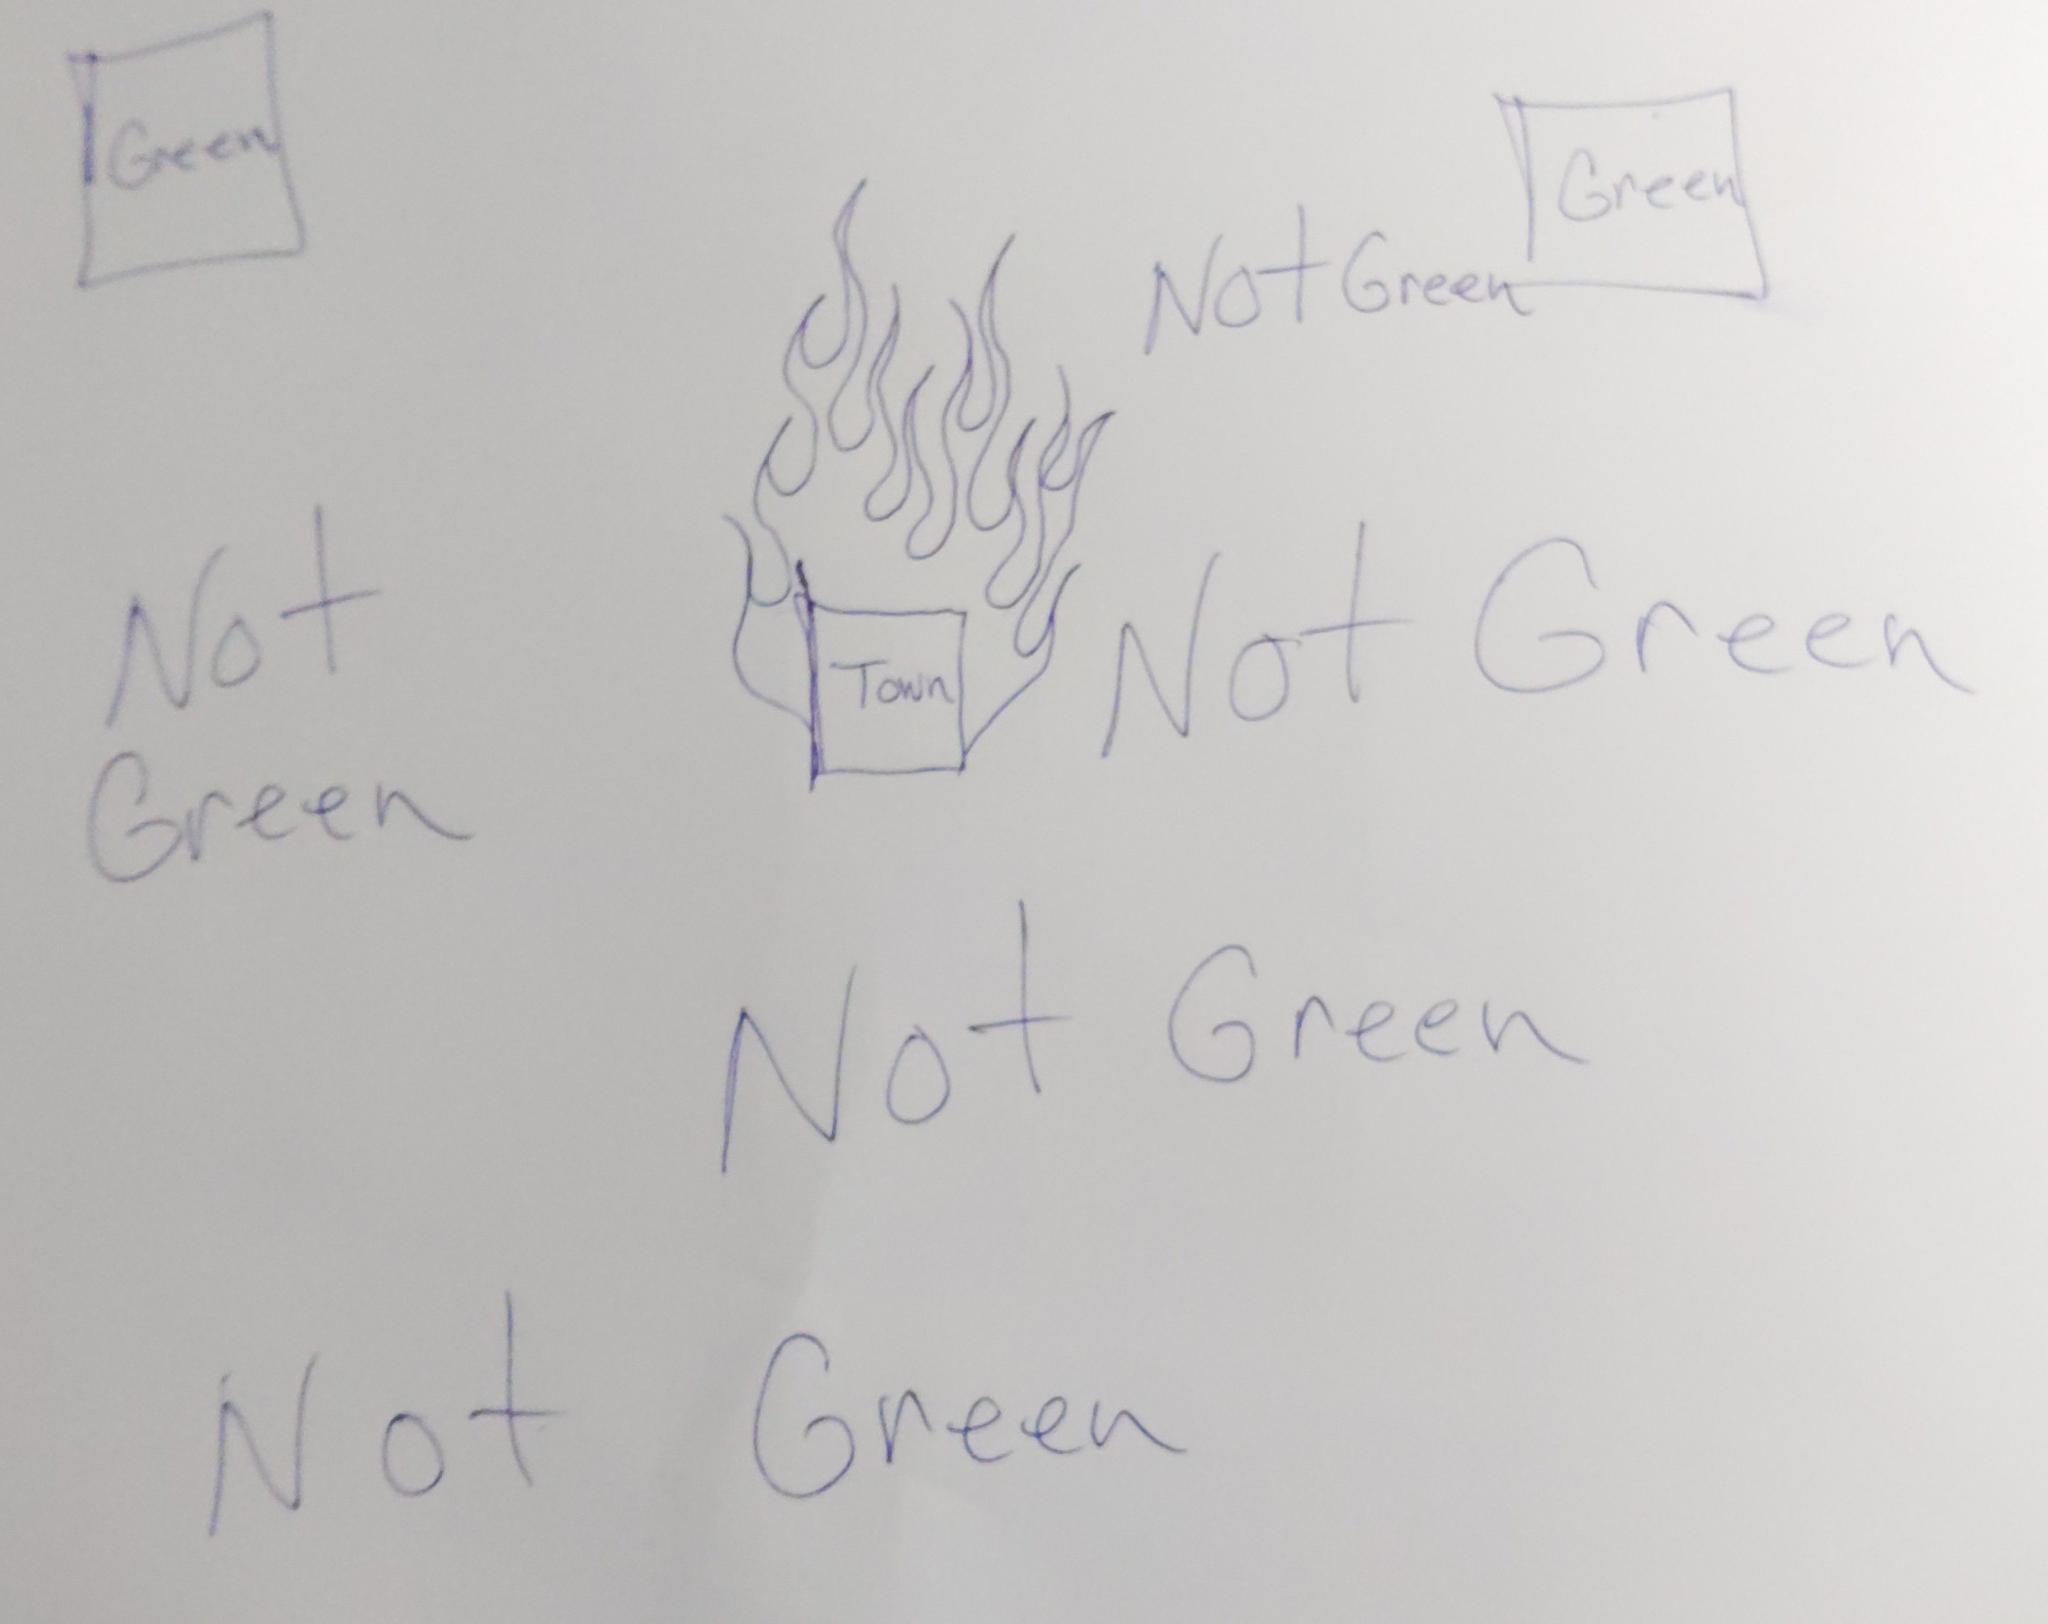 Green
Green
Not Green
Not
Green
Town
Not Green
Not Green
Not Green